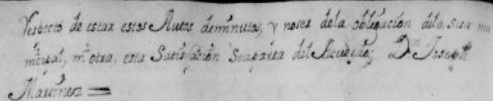 Respecto de estar estos Autos deminutos, y no ser de la obligacion de la
ni otra, esta Satisfacion Seaparta del Acuerdo; Dn Joseph
Martinez =